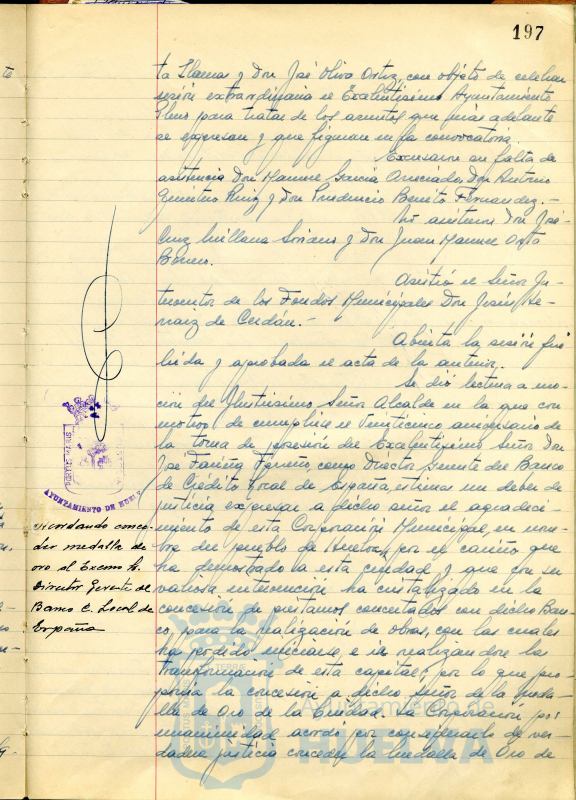 197
ta Llamas y Don José Oliva Ortiz, con objeto de celebrar
sesión extraordinaria el Excelentísimo Ayuntamiento
Pleno para tratar de los asuntos que más adelante
se expresan y que figuran en la convocatoria.
Excusaron su falta de
asistencia Don Manuel García Don Antonio
Ruiz y Don Prudencio Benito Fernandez.-
No asistieron Don José
Cruz Soriano y Don Juan Manuel
Asistió el Señor In-
terventor de los Fondos Municipales Don Jesús
de Cerdán.-
Abierta la sesión fué
leída y aprobada el acta de la anterior.
Se dió lectura a mo-
ción del Ilustrísimo Señor Alcalde en la que con
motivo de cumplirse el Veinticinco aniversario de
la toma de posesión del Excelentísimo Señor Don
José Fariña como Director Gerente del Banco
de Crédito Local de España, estima un deber de
justicia expresar a dicho señor el agradeci-
miento de esta Corporación Municipal, en nom-
bre del pueblo de Huelva, por el cariño que
ha demostrado a esta ciudad y que con su
valiosa intervención ha cristalizado en la
concesión de préstamos concertados con dicho Ban-
co, para la realización de obras, con las cuales
ha podido iniciarse, e ir realizandose la
transformación de esta capital; por lo que pro-
ponía la concesión a dicho Señor de la meda-
lla de Oro de la Ciudad. La Corporación por
unanimidad acordó por considerarlo de ver-
dadera justicia conceder la Medalla de Oro de
AYUNTAMIENTO DE HUELVA
Acordando conce-
der medalla de
oro al Excmo Sr.
Director Gerente del
Banco C. Local de
España
Ayuntamiento de
HUELVA